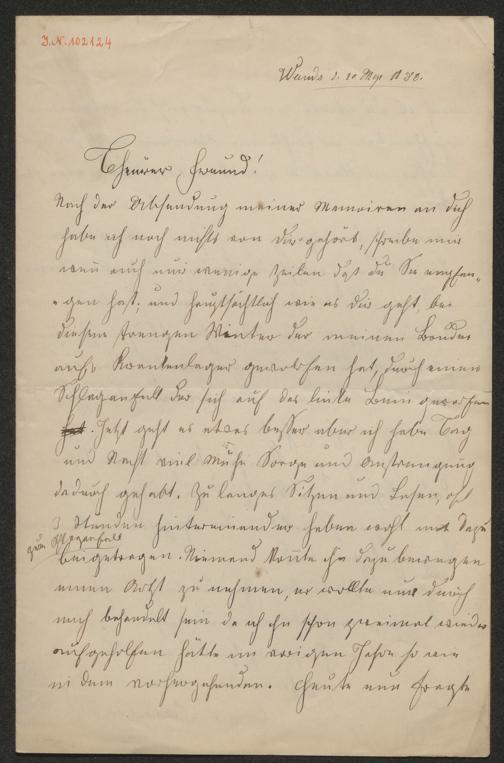 J.N. 102124
Theurer Freund!
Nach der Absendung meiner Memoiren an dich
habe ich noch nichts von dir gehört, schreibe mir
wenn auch nur wenige Zeilen daß du Sie empfan-
gen hast, und hauptsächlich wie es dir geht, bei
diesem strengen Winter der meinen Bruder
aufs Krankenlager geworfen hat, durch einen
Schlaganfall der sich auf das linke Bein geworfen
hat. Jetzt geht es etwas besser aber ich habe Tag
und Nacht viel Mühe Sorge und Anstrengung
dadurch gehabt. Zu langes Sitzen und Lesen, oft
3 Stunden hintereinander haben wohl mit dazu
zum Schlaganfall
beigetragen. Niemand konnte ihn dazu bewegen
einen Arzt zu nehmen, er wollte nur durch
mich behandelt sein da ich ihn schon zweimal wieder
aufgeholfen hätte im vorigen Jahre so wie
in dem vorhergehenden. Heute nun fragte